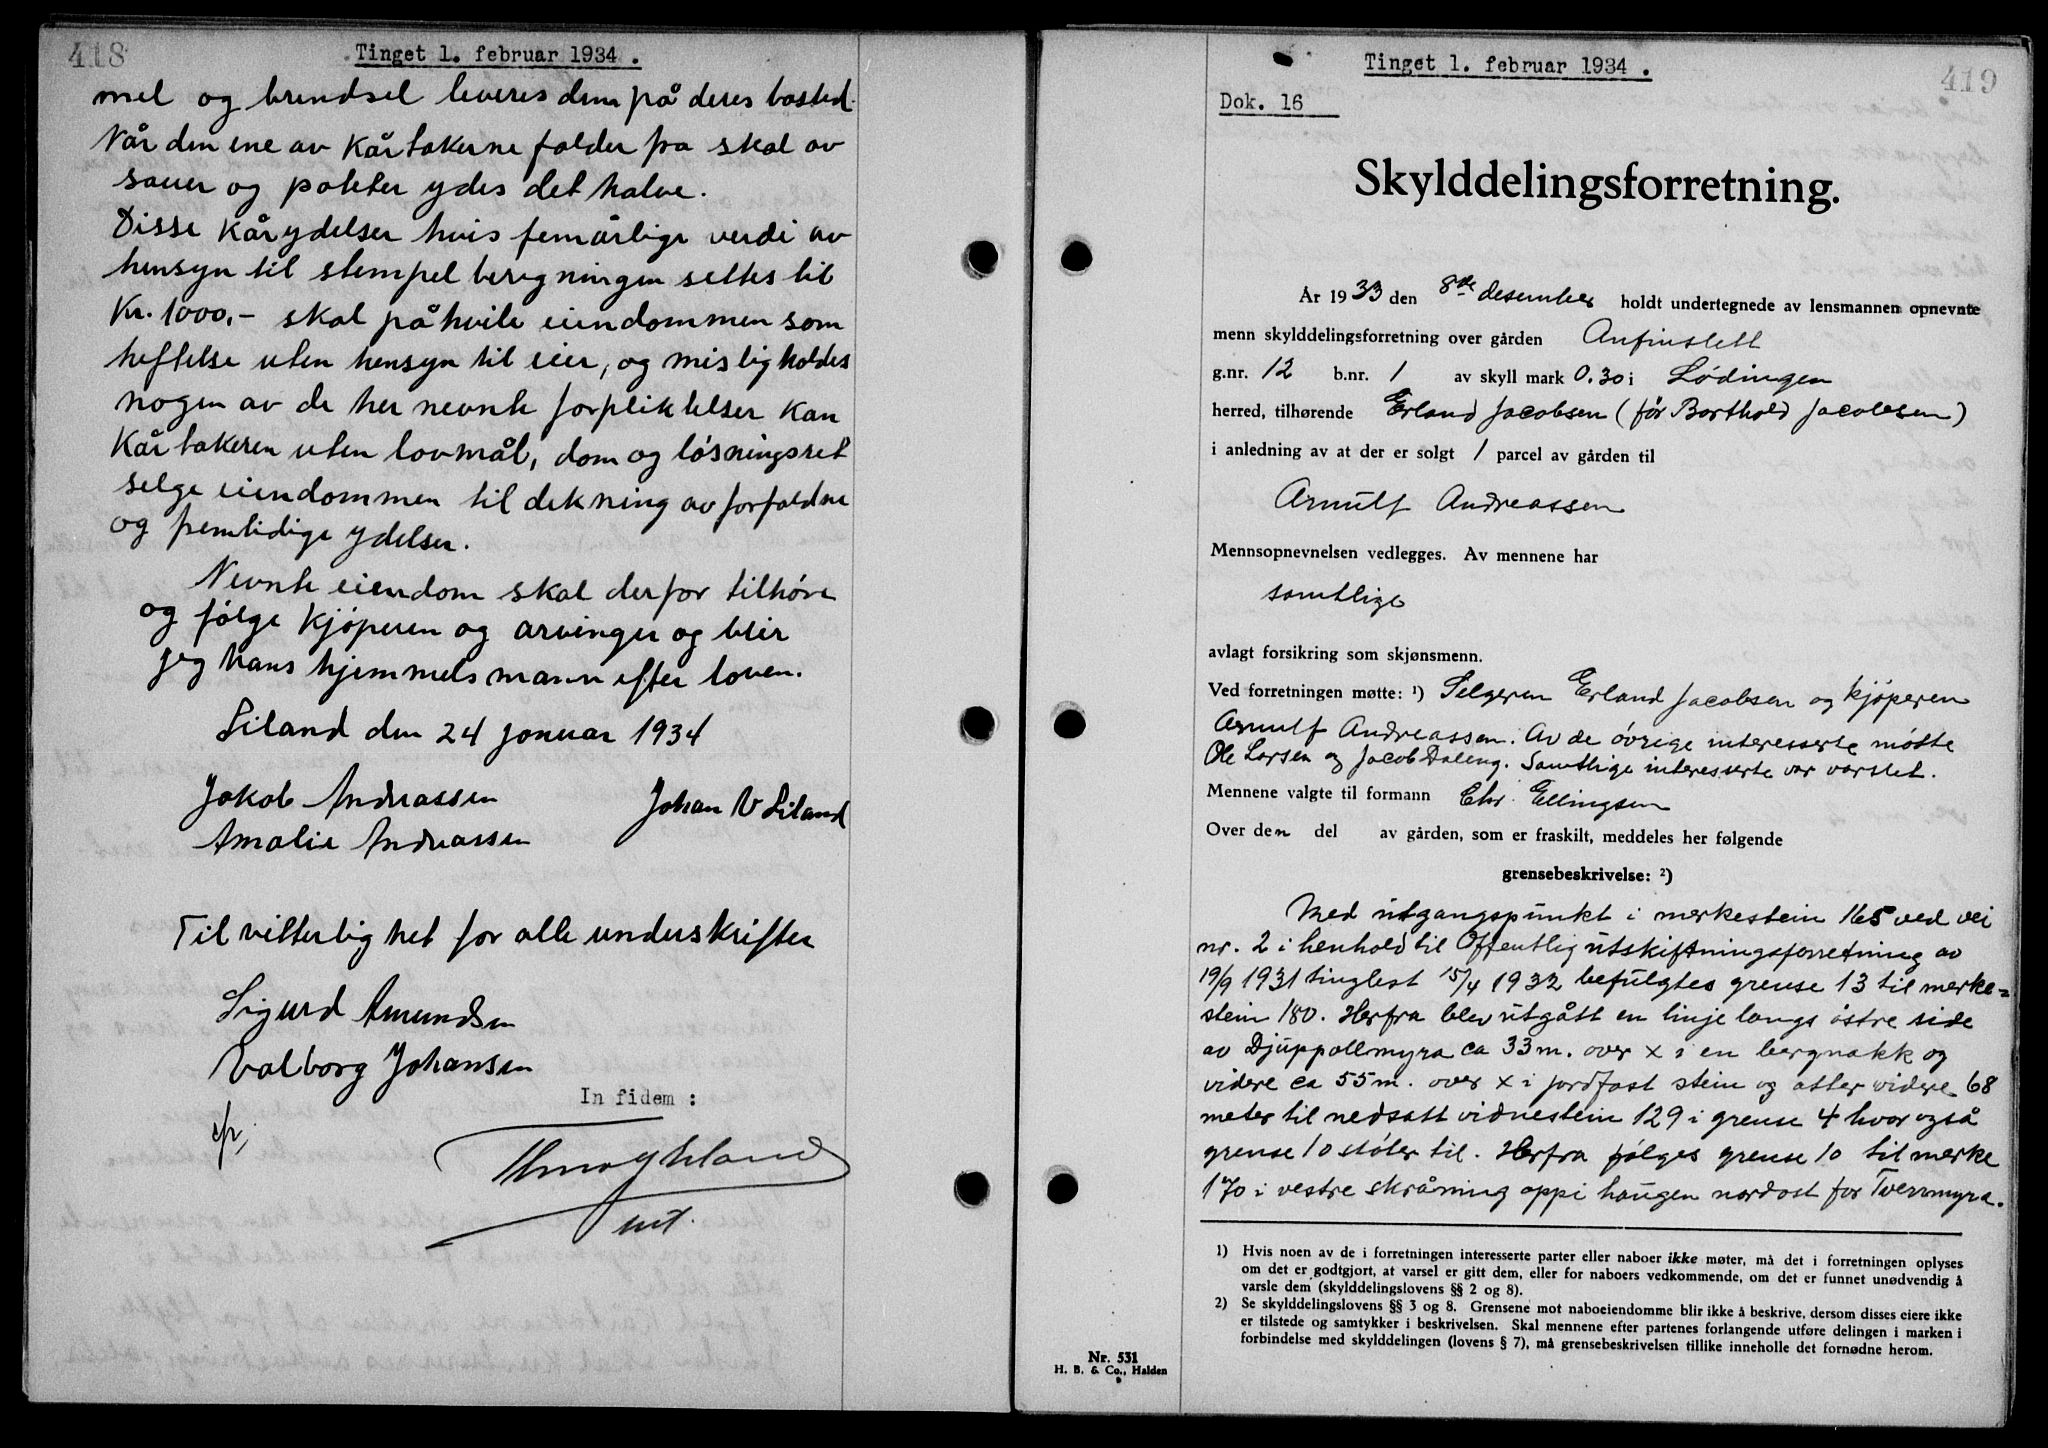 418
Tinget 1. februar 1934.
mel og brendsel leveres dem på deres bosted.
Når den ene av kårtakerne falder fra skal av
sauer og poteter ydes det halve.
Disse kårydelser hvis femårlige verdi av
hensyn til stempelberegningen settes til
Kr. 1000,- skal påhvile eiendommen som
heftelse uten hensyn til eier, og misligholdes
nogen av de her nevnte forpliktelser kan
kårtakeren uten lovmål, dom og løsningsret
selge eiendommen til dekning av forfaldne
og fremtidige ydelser.
Nevnte eiendom skal derfor tilhøre
og følge kjøperen og arvinger og blir
jeg hans hjemmelsmann efter loven.
Liland den 24 januar 1934
Jakob Andreassen Johan V Liland
Amalie Andreassen
Til vitterlighet for alle underskrifter
Sigurd Amundsen
Valborg Johansen
In fidem:
419
Tinget 1. februar 1934.
Dok. 16
Skylddelingsforretning.
År 1933 den 8de desember holdt undertegnede av lensmannen opnevnte
menn skylddelingsforretning over gården Anfinslett
g.nr. 12 b.nr. 1 av skyll mark 0.30 i Lødingen
herred, tilhørende Erland Jacobsen (før Borthold Jacobsen)
i anledning av at der er solgt 1 parcel av gården til
Arnulf Andreassen
Mennsopnevnelsen vedlegges. Av mennene har
samtlige
avlagt forsikring som skjønsmenn.
Ved forretningen møtte: 1) Selgeren Erland Jacobsen og kjøperen
Arnulf Andreassen. Av de øvrige interesserte møtte
Ole Larsen og Jacob Daleng. Samtlige interesserte var varslet.
Mennene valgte til formann Chr. Ellingsen
Over den del av gården, som er fraskilt, meddeles her følgende
grensebeskrivelse: 2)
Med utgangspunkt i merkestein 165 ved vei
nr. 2 i henhold til Offentlig utskiftningsforretning av
19/9 1931 tinglest 15/4 1932 befulgtes grense 13 til merke=
stein 180. Herfra blev utgått en linje langs østre side
av Djuppollmyra ca 33 m. over x i en bergnakk og
videre ca 55 m. over x i jordfast stein og atter videre 68
meter til nedsatt vidnestein 129 i grense 4 hvor også
grense 10 støter til. Herfra følges grense 10 til merke
170 i vestre skråning oppi haugen nordost for Tverrmyra.
1) Hvis noen av de i forretningen interesserte parter eller naboer ikke møter, må det i forretningen oplyses
om det er godtgjort, at varsel er gitt dem, eller for naboers vedkommende, om det er funnet unødvendig å
varsle dem (skylddelingslovens §§ 2 og 8).
2) Se skylddelingslovens §§ 3 og 8. Grensene mot naboeiendomme blir ikke å beskrive, dersom disses eiere ikke
er tilstede og samtykker i beskrivelsen. Skal mennene efter partenes forlangende utføre delingen i marken i
forbindelse med skylddelingen (lovens § 7), må grensebeskrivelsen tillike inneholle det fornødne herom.
Nr. 531
H. B. & Co., Halden